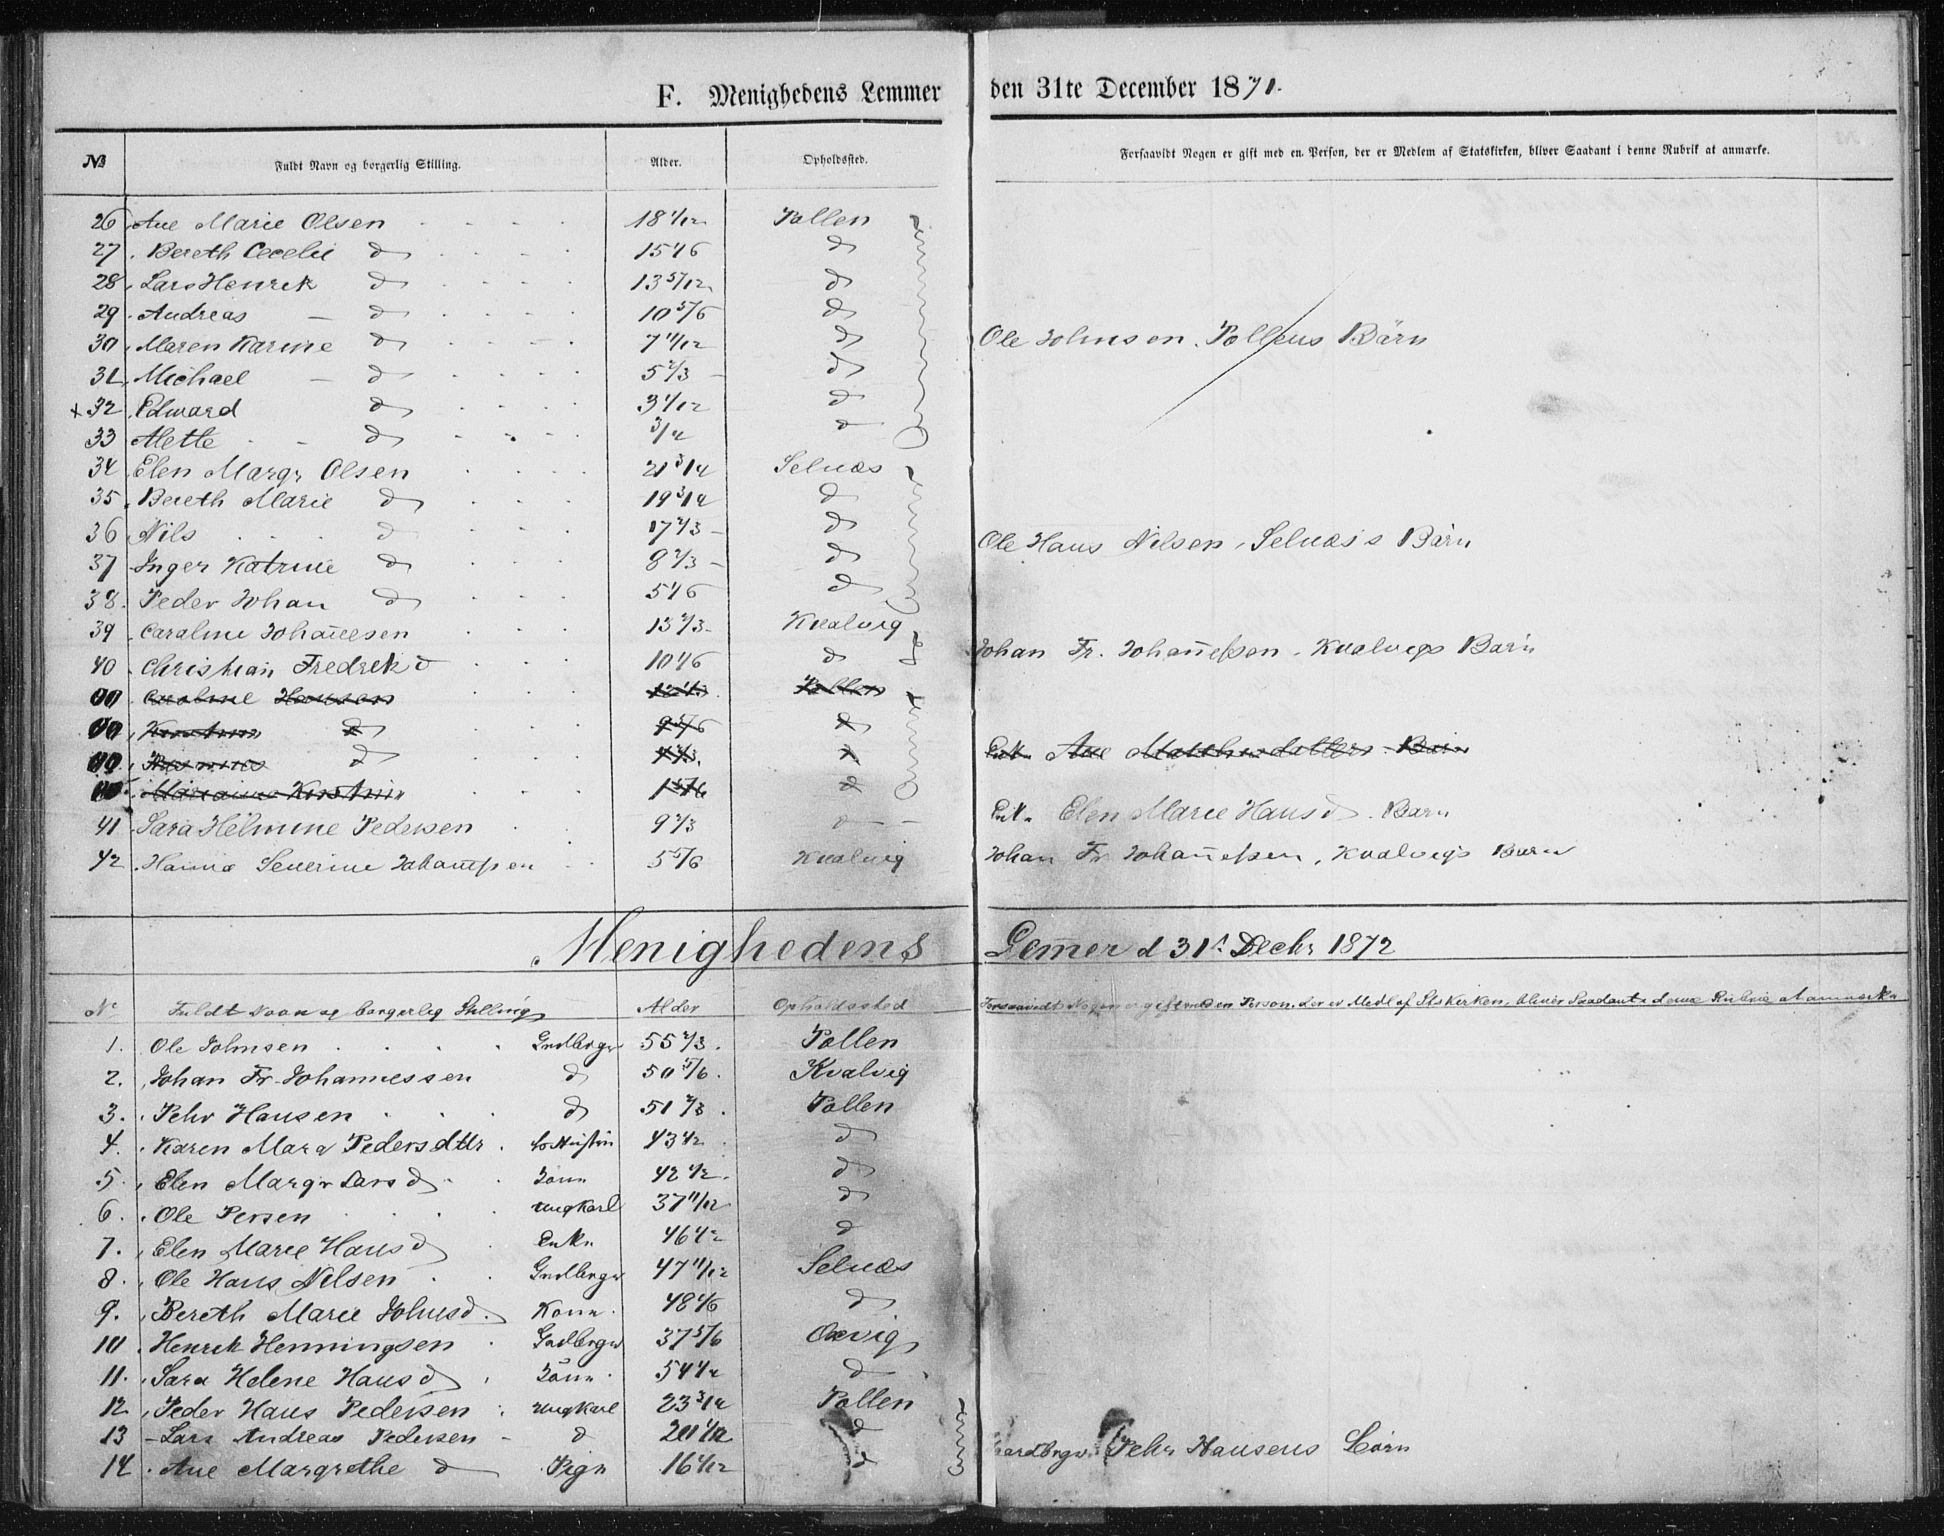 F. Menighedens Lemmer den 31te December 1871.
№ Fuldt Navn og borgerlig Stilling. Alder. Opholdssted. Forsaavidt Nogen er gift med en Person, der er Medlem af Statskirken, bliver Saadant i denne Rubrik at anmærke.
26 Ane Marie Olsen 18 1/12 Pollen
27 Bereth Cecelie d 15 1/6 d
28 Lars Henrik d 13 5/12 d
29 Andreas — d 10 5/6 d
30 Maren Karine d 7 11/12 d Ole Johnsen. Pollens Börn
31 Michael — d 5 2/3 — d
x 32 Edward d 3 1/12 d
33 Mette - - d 3/4 d
34 Elen Margr Olsen 21 3/4 Selnæs
35 Bereth Marie d 19 3/4 d
36 Nils d 17 2/3 — d Ole Hans Nilsen, Selnæs's Börn
37 Inger Katrine d 8 2/3 — d
38. Peder Johan d 5 1/6 d
39 Caroline Johan̄esen 13 2/3 - Kvalvig
40 Christian Fredrek d 10 1/6 d Johan Fr. Johan̄eſsen - Kvalvigs Barn
Caroline Hansen Pollen
d d
d Enk. Ane Börn
Marianne d
41 Sara Helmine Pedersen 9 2/3 d — Enk. Elen Marie Hansd. Barn
42 Hanna Severine Johan̄eſsen 5 5/6 Kvalvig Johan Fr Johan̄eſsen, Kvalvigs Barn
Menighedens Lem̄er d 31t Decbr 1872
No Fuldt Navn og borgerlig Stilling Alder Opholdssted Forsaavidt Nogen er gift med en Person, der er Medl af Statskirken, bliver Saadant i denne Rubrik at anmærke
1. Ole Johnsen Grdbrgr 55 2/3. Pollen
2. Johan Fr. Johannessen d 50 5/6. Kvalvig
3. Pehr Hansen d 51 2/3. Pollen
4. Karen Mara Pedersdttr. 43 1/2 d
5. Elen Margr Larsd 42 1/2. d
6. Ole Persen ungkarl 37 11/12 d
7. Elen Marie Hansd Enke 46 1/2 d
8. Ole Hans Nilsen Grdbrgr 47 11/12 Selnæs
9. Bereth Marie Johnsd. Kone. 48 1/6 d
10 Henrik Henningsen Grdbrgr 37 5/6 Oxvig
11. Sara Helene Hansd 54 1/2 d
12 Peder Hans Pedersen ungkarl 23 3/4 Pollen
13 - Lars Andreas Pedersen - d 20 1/2 d Gaardbrgr. Pehr Hansens Börn
14. Ane Margrethe d Pige 16 1/12 d